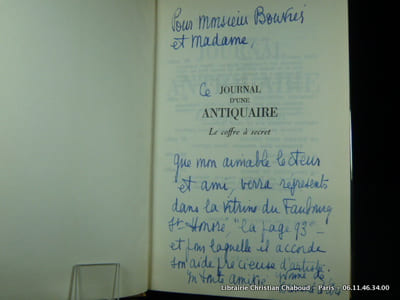 Pour Monsieur Bouvier
et Madame,
Ce JOURNAL
D'UNE
ANTIQUAIRE
Le coffre à secret
que mon aimable lecteur
et ami, verra représenté
dans la vitrine du Faubourg
St Honoré, "la page 93" —
et pour laquelle il accorde
son aide précieuse d'artiste.
En toute amitié Yvonne de
Librairie Christian Chaboud - Paris - 06.11.46.34.00